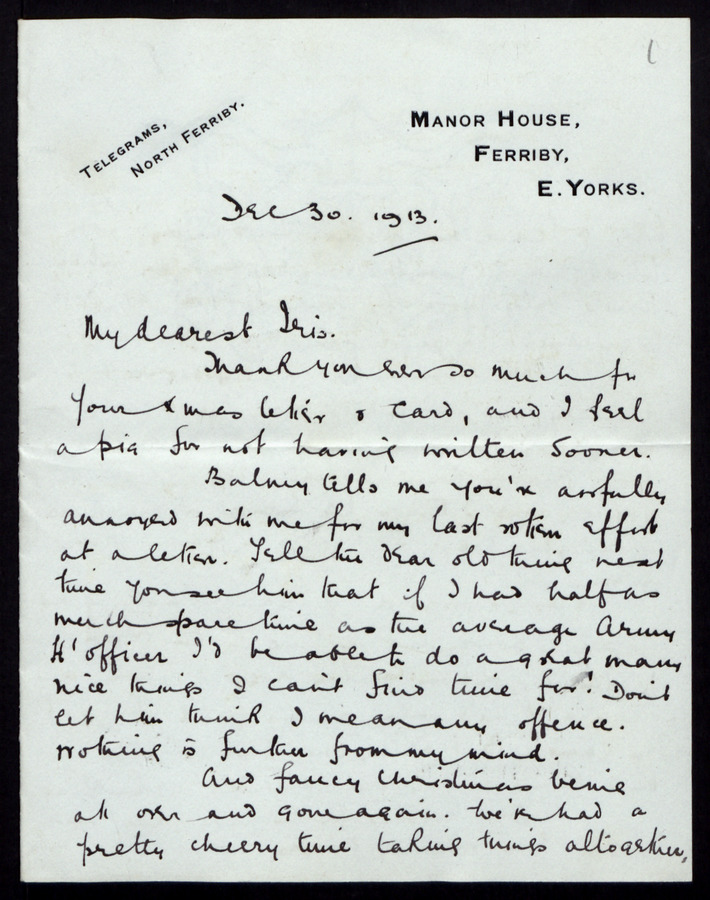 1
TELEGRAMS,
NORTH FERRIBY.
MANOR HOUSE,
FERRIBY,
E. YORKS.
Dec 30. 1913.
My dearest Iris.
Thank you ever so much for
your Xmas letter & card, and I feel
a pig for not having written sooner.
Balmy tells me you're awfully
annoyed with me for my last rotten effort
at a letter. Tell the dear old thing next
time you see him that if I had half as
much spare time as the average Army
officer I'd be able to do a great many
nice things I can't find time for! Don't
let him think I mean any offence.
Nothing is further from my mind.
And fancy Christmas being
all over and gone again. We've had a
pretty cheery time taking things altogether,